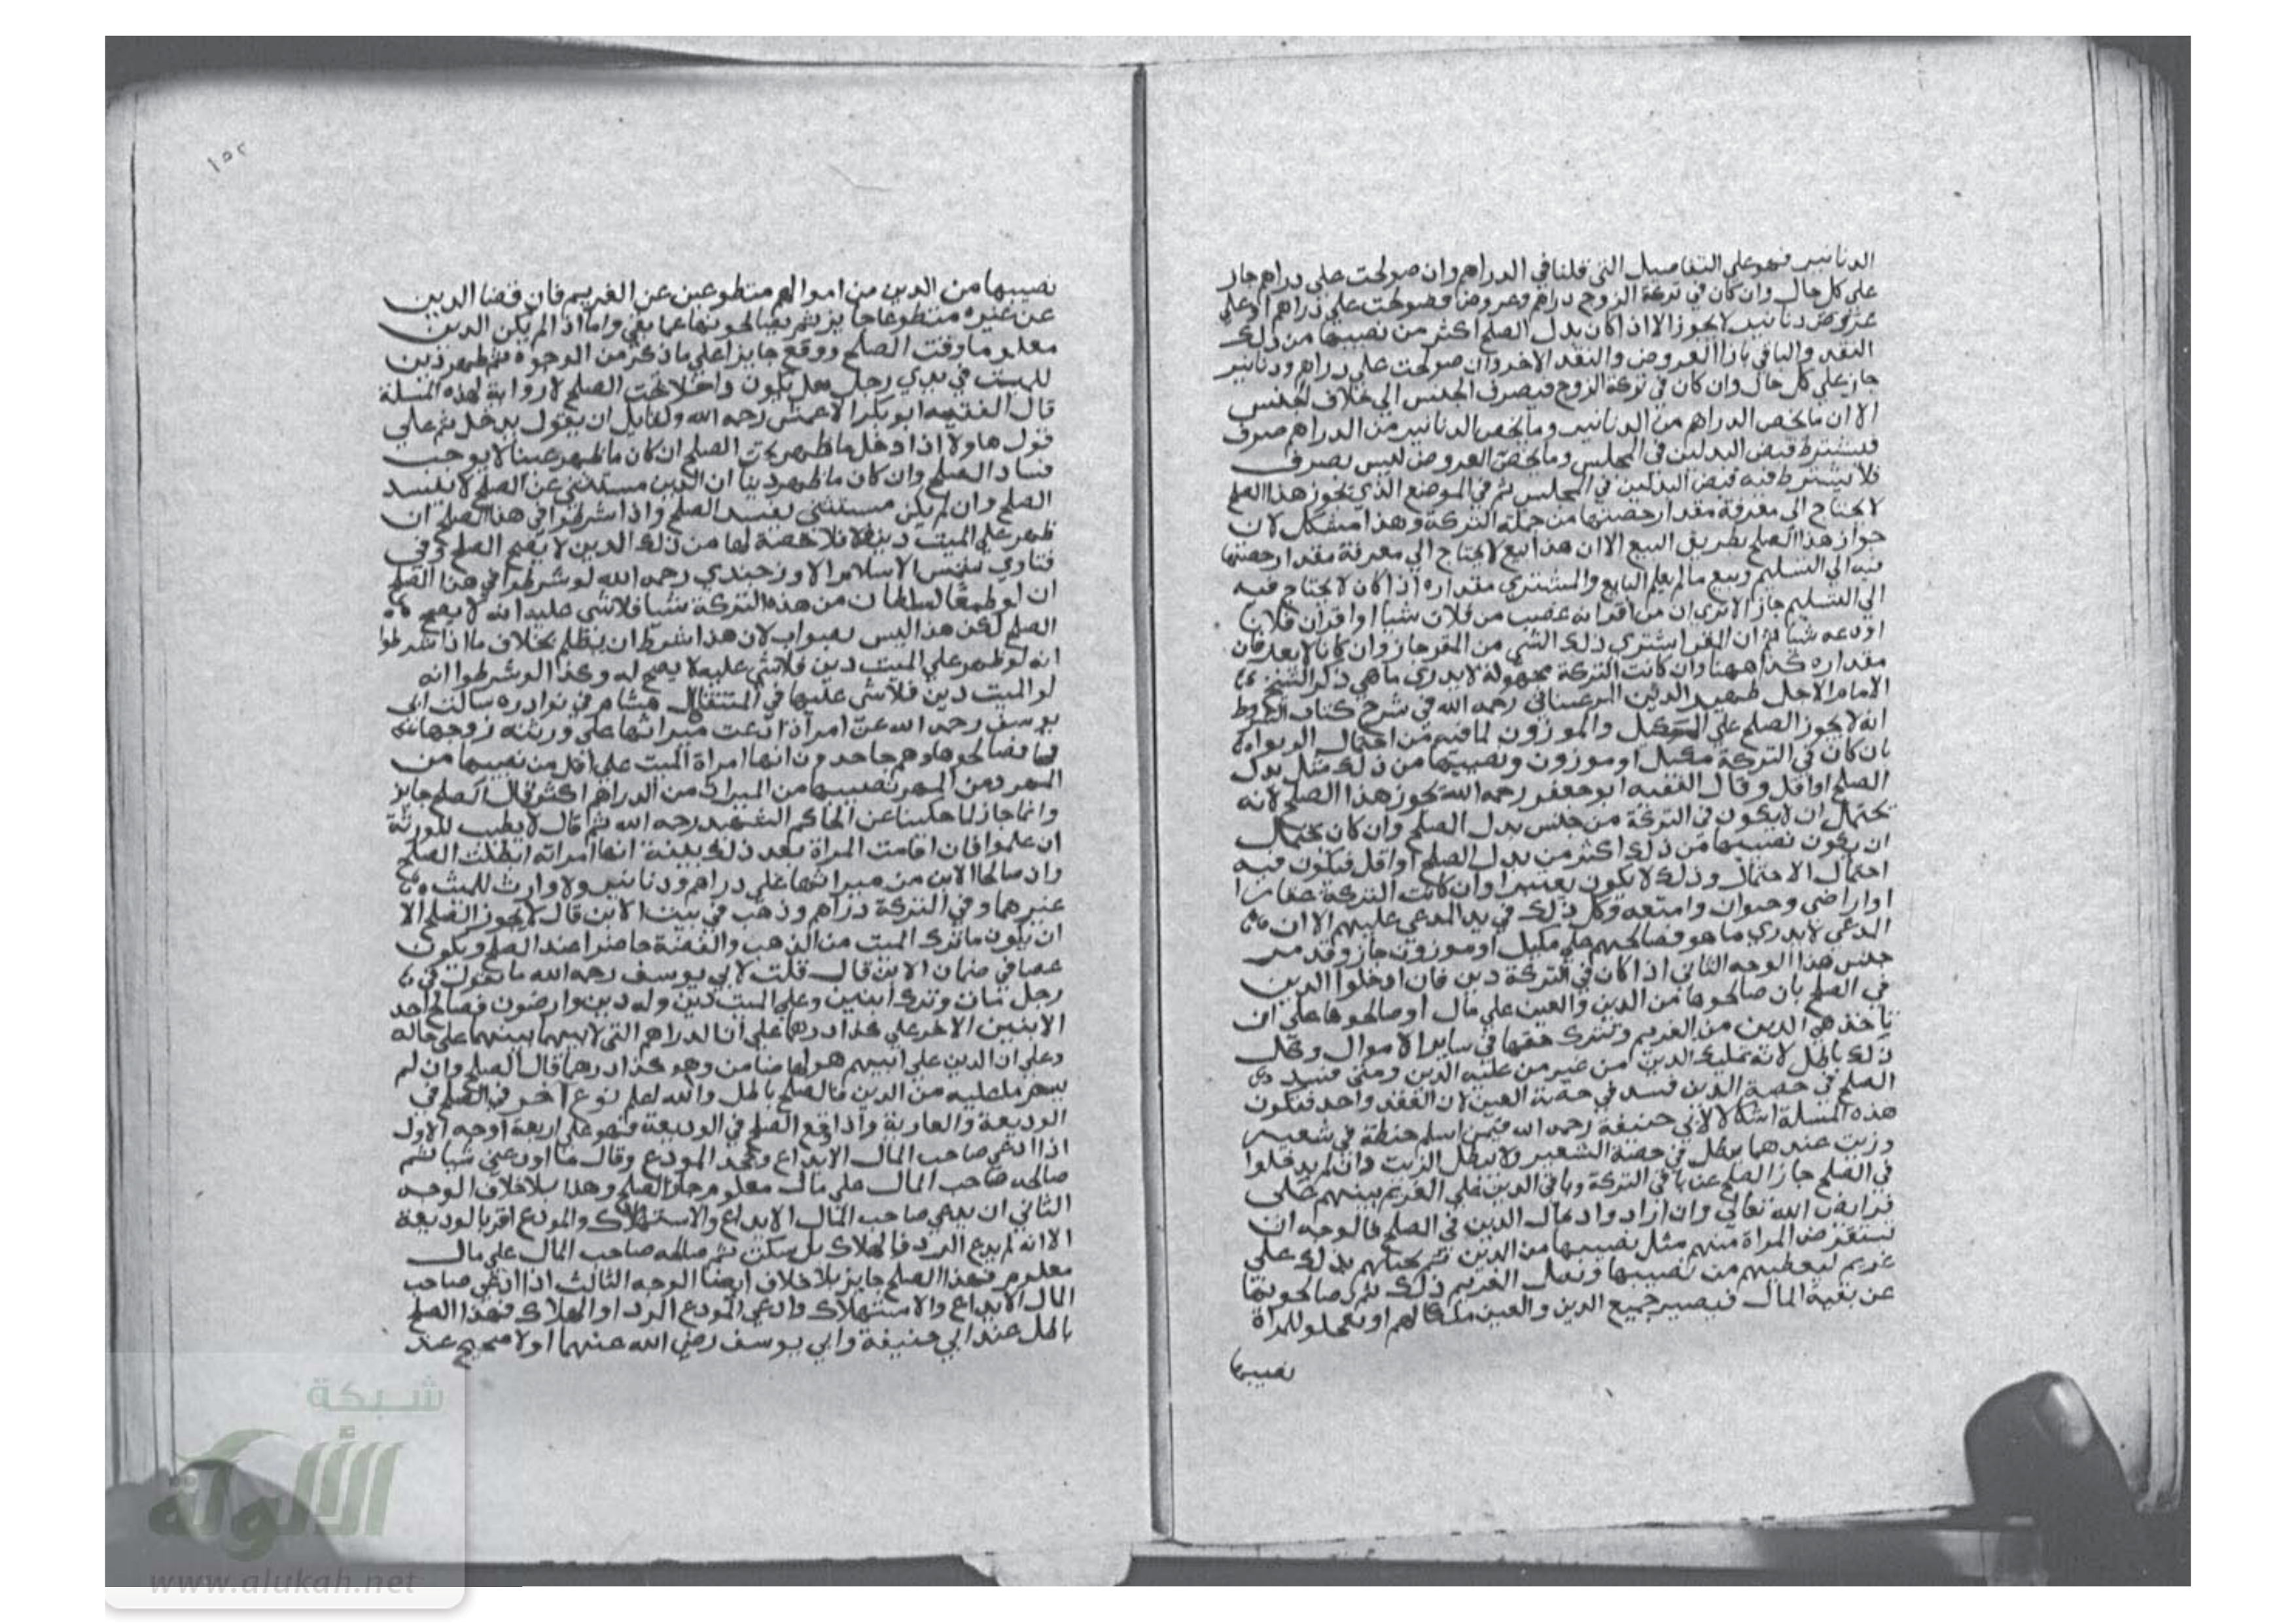 الدنانير فهو على التفاصيل التي قلنا في الدراهم وان صولحت على دراهم جاز
على كل حال وان كان في تركة الزوج دراهم وعروض فصولحت على دراهم او على
عروض دنانير لا يجوز الا اذا كان بدل الصلح اكثر من نصيبها من ذلك
النقد والباقي بازا العروض والنقد الاخر وان صولحت على دراهم ودنانير
جاز على كل حال وان كان في تركة الزوج فيصرف الجنس الي خلاف الجنس
الا ان ما يخص الدراهم من الدنانير وما يخص الدنانير من الدراهم صرف
فيشترط قبض البدلين في المجلس وما يخص العروض ليس بصرف
فلا يشترط فيه قبض البدلين في المجلس ثم في الموضع الذي يجوز هذا الصلح
لا يحتاج الى معرفة مقدار حصتها من جملة التركة وهذا مشكل لان
جواز هذا الصلح بطريق البيع الا ان هذا بيع لا يحتاج الي معرفة مقدار حصتها
فيه الي التسليم وبيع ما لم يعلم البايع والمشتري مقداره اذا كان لا يحتاج فيه
الي التسليم جاز الا ترى ان من اقر انه غصب من فلان شيا او اقر ان فلانا
اودعه شيا ثم ان المقر اشتري ذلك الشي من المقر جاز وان كانا لا يعرفان
مقداره كذا ههنا وان كانت التركة مجهولة لا يدرى ما هي ذكر الشيخ
الامام الاجل ظهير الدين المرغيناني رحمه الله في شرح كتاب الشروط
انه لا يجوز الصلح على المكيل والموزون لما فيه من احتمال الربوا
بان كان في التركة مكيل او موزون ونصيبها من ذلك مثل بدل
الصلح او اقل وقال الفقيه ابو جعفر رحمه الله يجوز هذا الصلح لانه
يحتمل ان لا يكون في التركة من جنس بدل الصلح وان كان يحتمل
ان يكون نصيبها من ذلك اكثر من بدل الصلح او اقل فيكون فيه
احتمال الاحتمال وذلك لا يكون معتبرا وان كانت التركة عقارا
او اراضى وحيوان وامتعه وكل ذلك في يد المدعى عليهم الا ان
المدعي لا يدري ما هو فصالحهم على مكيل او موزون جاز وقد مر
جنس هذا الوجه الثاني اذا كان في التركة دين فان ادخلوا الدين
في الصلح بان صالحوها من الدين والعين على مال او صالحوها على ان
ياخذ هم الدين من الغريم وتترك حقها في ساير الاموال وكل
ذلك باطل لانه تمليك الدين من غير من عليه الدين ومتى فسد
الصلح في حصة الدين فسد في حصة العين لان العقد واحد فيكون
هذه المسئلة اشكالا لابي حنيفة رحمه الله فيمن اسلم حنطة في شعير
وزيت عندهما يبطل في حصة الشعير ولا يبطل الزيت وان لم يدخلوا
في الصلح جاز الصلح عن باقي التركة وباقي الدين على الغريم بينهم على
فرايض الله تعالى وان اراد وادخال الدين في الصلح فالوجه ان
تستقرض المراة منهم مثل نصيبها من الدين ثم تحيلهم بذلك على
غريم ليعطيهم من نصيبها وتقبل الغريم ذلك ثم يصالحونها
عن بقية المال فيصير جميع الدين والعين ملكا لهم او يعجلو للمراة
نصيبها
١٥٢
نصيبها من الدين من اموالهم متطوعين عن الغريم فان قضا الدين
عن غيره متطوعا جايز ثم يصالحونها عما بقي واما اذا لم يكن الدين
معلوما وقت الصلح ووقع جايزا على ما ذكر من الوجوه ثم ظهر دين
للميت في يدي رجل هل يكون داخلا تحت الصلح لا رواية لهذه المسئلة
قال الفقيه ابو بكر الاعمش رحمه الله ولقايل ان يقول يدخل ثم على
قول هاولا اذا دخل ما ظهر تحت الصلح ان كان ما ظهر عينا لا يوجب
فساد الصلح وان كان ما ظهر دينا ان الدين مستثنى عن الصلح لا يفسد
الصلح وان لم يكن مستثنى يفسد الصلح واذا شرطوا في هذا الصلح ان
ظهر على الميت دين فلا حصة لها من ذلك الدين لا يصح الصلح وفي
فتاوي شمس الاسلام الاوزجندي رحمه الله لو شرطوا في هذا الصلح
ان لو طمع السلطان من هذه التركة شيا فلا شى عليه انه لا يصح
الصلح لكن هذا ليس بصواب لان هذا شرط ان يظلم بخلاف ما اذا شرطوا
انه لو ظهر على الميت دين فلا شى عليه لا يصح له وكذا لو شرطوا انه
لو الميت دين فلا شى عليها في المنتقى هشام في نوادره سالت ابى
يوسف رحمه الله عن امراة ادعت ميراثها على ورثة زوجها
فصالحوها وهم جاحدون انها امراة الميت على اقل من نصيبها من
المهر ومن المهر نصيبها من الميراث من الدراهم اكثر قال الصلح جايز
وانما جاز لما حكينا عن الحاكم الشهيد رحمه الله ثم قال لا يطيب للورثة
ان علموا فان اقامت المراة بعد ذلك بينة انها امراته ابطلت الصلح
وان صالحا الابن من ميراثها على دراهم ودنانير ولا وارث للميت
غيرهما وفي التركة دراهم وذهب في بيت الابن قال لا يجوز الصلح الا
ان يكون ما ترك الميت من الذهب والفضة حاضرا عند الصلح ويكون
غصبا في ضمان الابن قال قلت لابي يوسف رحمه الله ما تقول في
رجل مات وترك ابنين وعلى الميت دين وله دين وارضون فصالح احد
الابنين الاخر على كذا درهما على ان الدراهم التي لابيهما بينهما على حاله
وعلى ان الدين على ابيهم هو لها ضامن وهو كذا درهما قال الصلح وان لم
يسم ما عليه من الدين فالصلح باطل والله اعلم نوع اخر في الصلح في
الوديعة والعارية واذا وقع الصلح في الوديعة فهو على اربعة اوجه الاول
اذا ادعى صاحب المال الايداع وجحد المودع وقال ما اودعني شيا ثم
صالحه صاحب المال على مال معلوم جاز الصلح وهذا بلا خلاف الوجه
الثاني ان يدعي صاحب المال الايداع والاستهلاك والمودع اقر بالوديعة
الا انه لم يدع الرد فالهلاك بل سكت ثم صالحه صاحب المال على مال
معلوم فهذا الصلح جايز بلا خلاف ايضا الوجه الثالث اذا ادعى صاحب
المال الايداع والاستهلاك وادعي المودع الرد او الهلاك فهذا الصلح
باطل عند ابي حنيفة وابي يوسف رضي الله عنهما اولا صحيح عند
شبكة
الألوكة
www.alukah.net